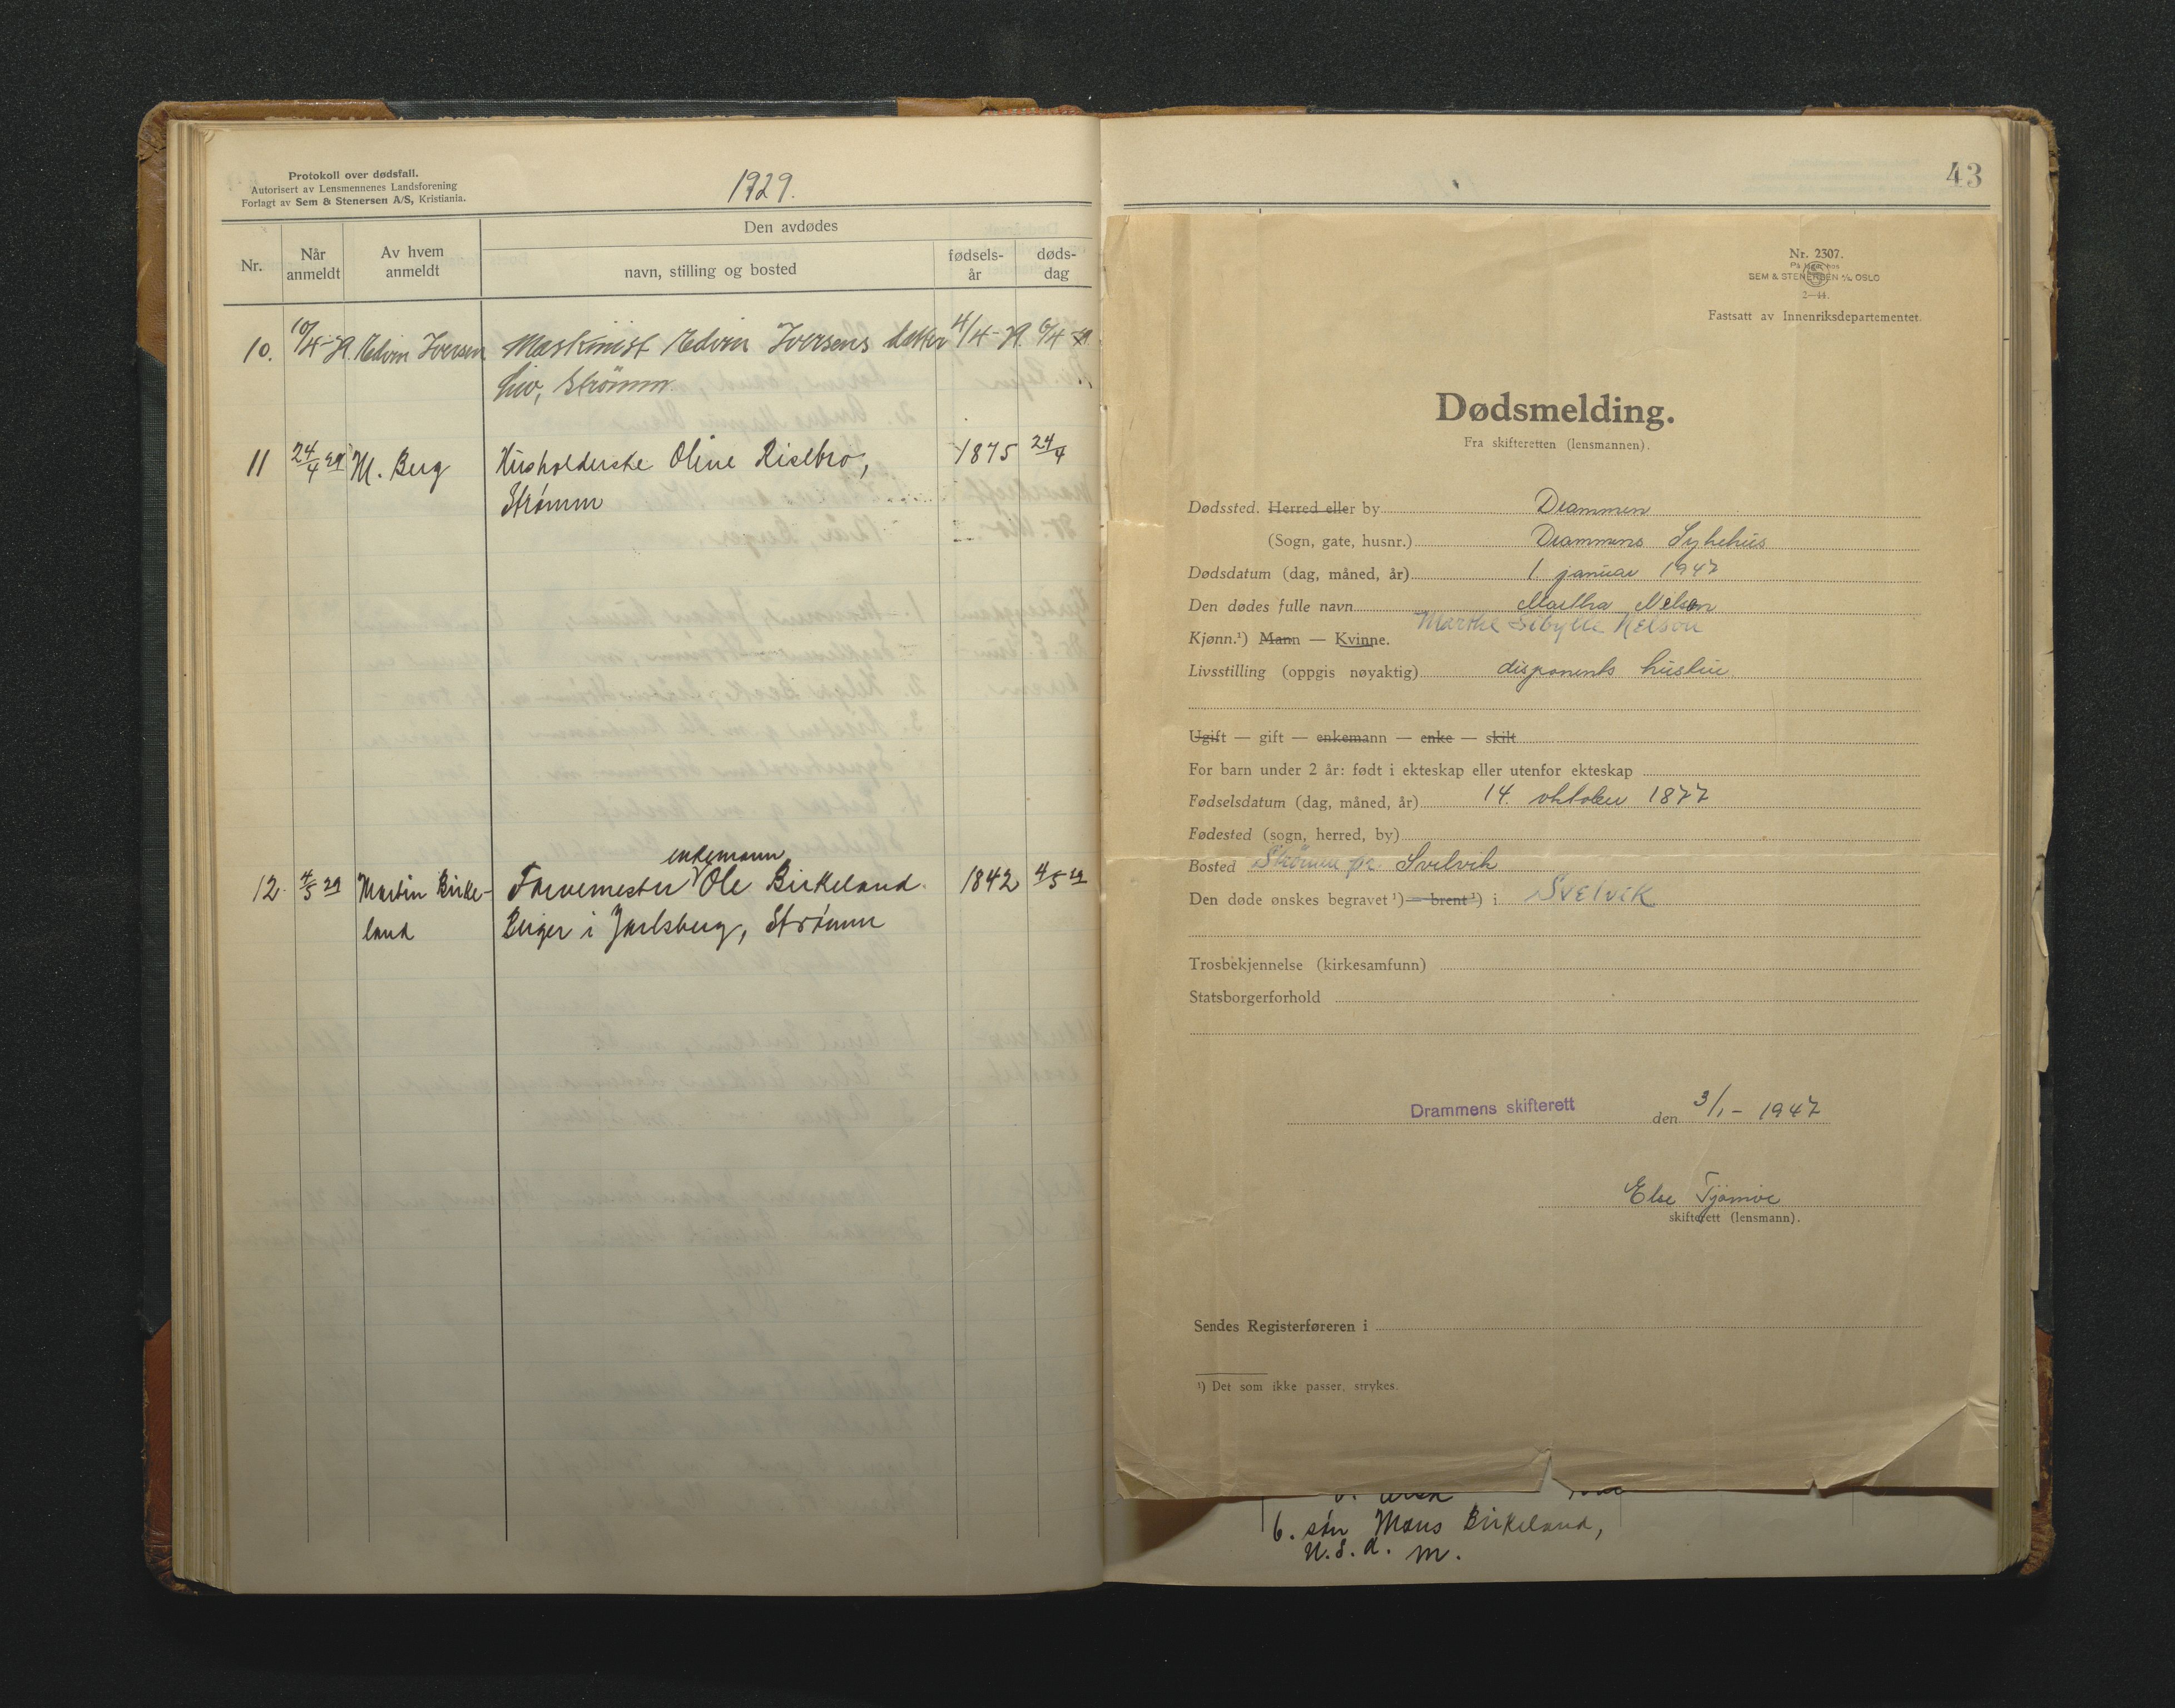 Protokoll over dødsfall.
Autorisert av Lensmennenes Landsforening
Forlagt av Sem & Stenersen A/S, Kristiania.
1929.
Nr.
Når anmeldt
Av hvem anmeldt
Den avdødes
navn, stilling og bosted
fødsels-år
døds-dag
10. 10/4-29. Edvin Iversen Maskinist Edvin Iversens datter 4/4-29. 6/4 29.
Liv, Strömm.
11 24/4 29 M. Berg Husholderske Oline Riselbro, 1875 24/4
Strømm
enkemann
12. 4/5 29 Martin Birke- Farvemester Ole Birkeland. 1842 4/5 29
land Berger i Jarlsberg, Strømm
43
Nr. 2307.
På lager hos
SEM & STENERSEN A/S, OSLO
2—44.
Fastsatt av Innenriksdepartementet.
Dødsmelding.
Fra skifteretten (lensmannen).
Dødssted. Herred eller by Drammen
(Sogn, gate, husnr.) Drammens Sykehus
Dødsdatum (dag, måned, år) 1. januar 1947
Den dødes fulle navn Martha Nelson
Marthe Sibylle Nelson
Kjønn.¹) Mann — Kvinne.
Livsstilling (oppgis nøyaktig) disponents hustru
Ugift — gift — enkemann — enke — skilt
For barn under 2 år: født i ekteskap eller utenfor ekteskap
Fødselsdatum (dag, måned, år) 14. oktober 1877
Fødested (sogn, herred, by)
Bosted Strömm pr. Svelvik
Den døde ønskes begravet ¹) — brent ¹) i SVElviK
Trosbekjennelse (kirkesamfunn)
Statsborgerforhold
Drammens skifterett den 3/1 - 1947
Else Tjømøe
skifterett (lensmann).
Sendes Registerføreren i
¹) Det som ikke passer, strykes.
6. søn Mons Birkeland,
U.S.A. m.